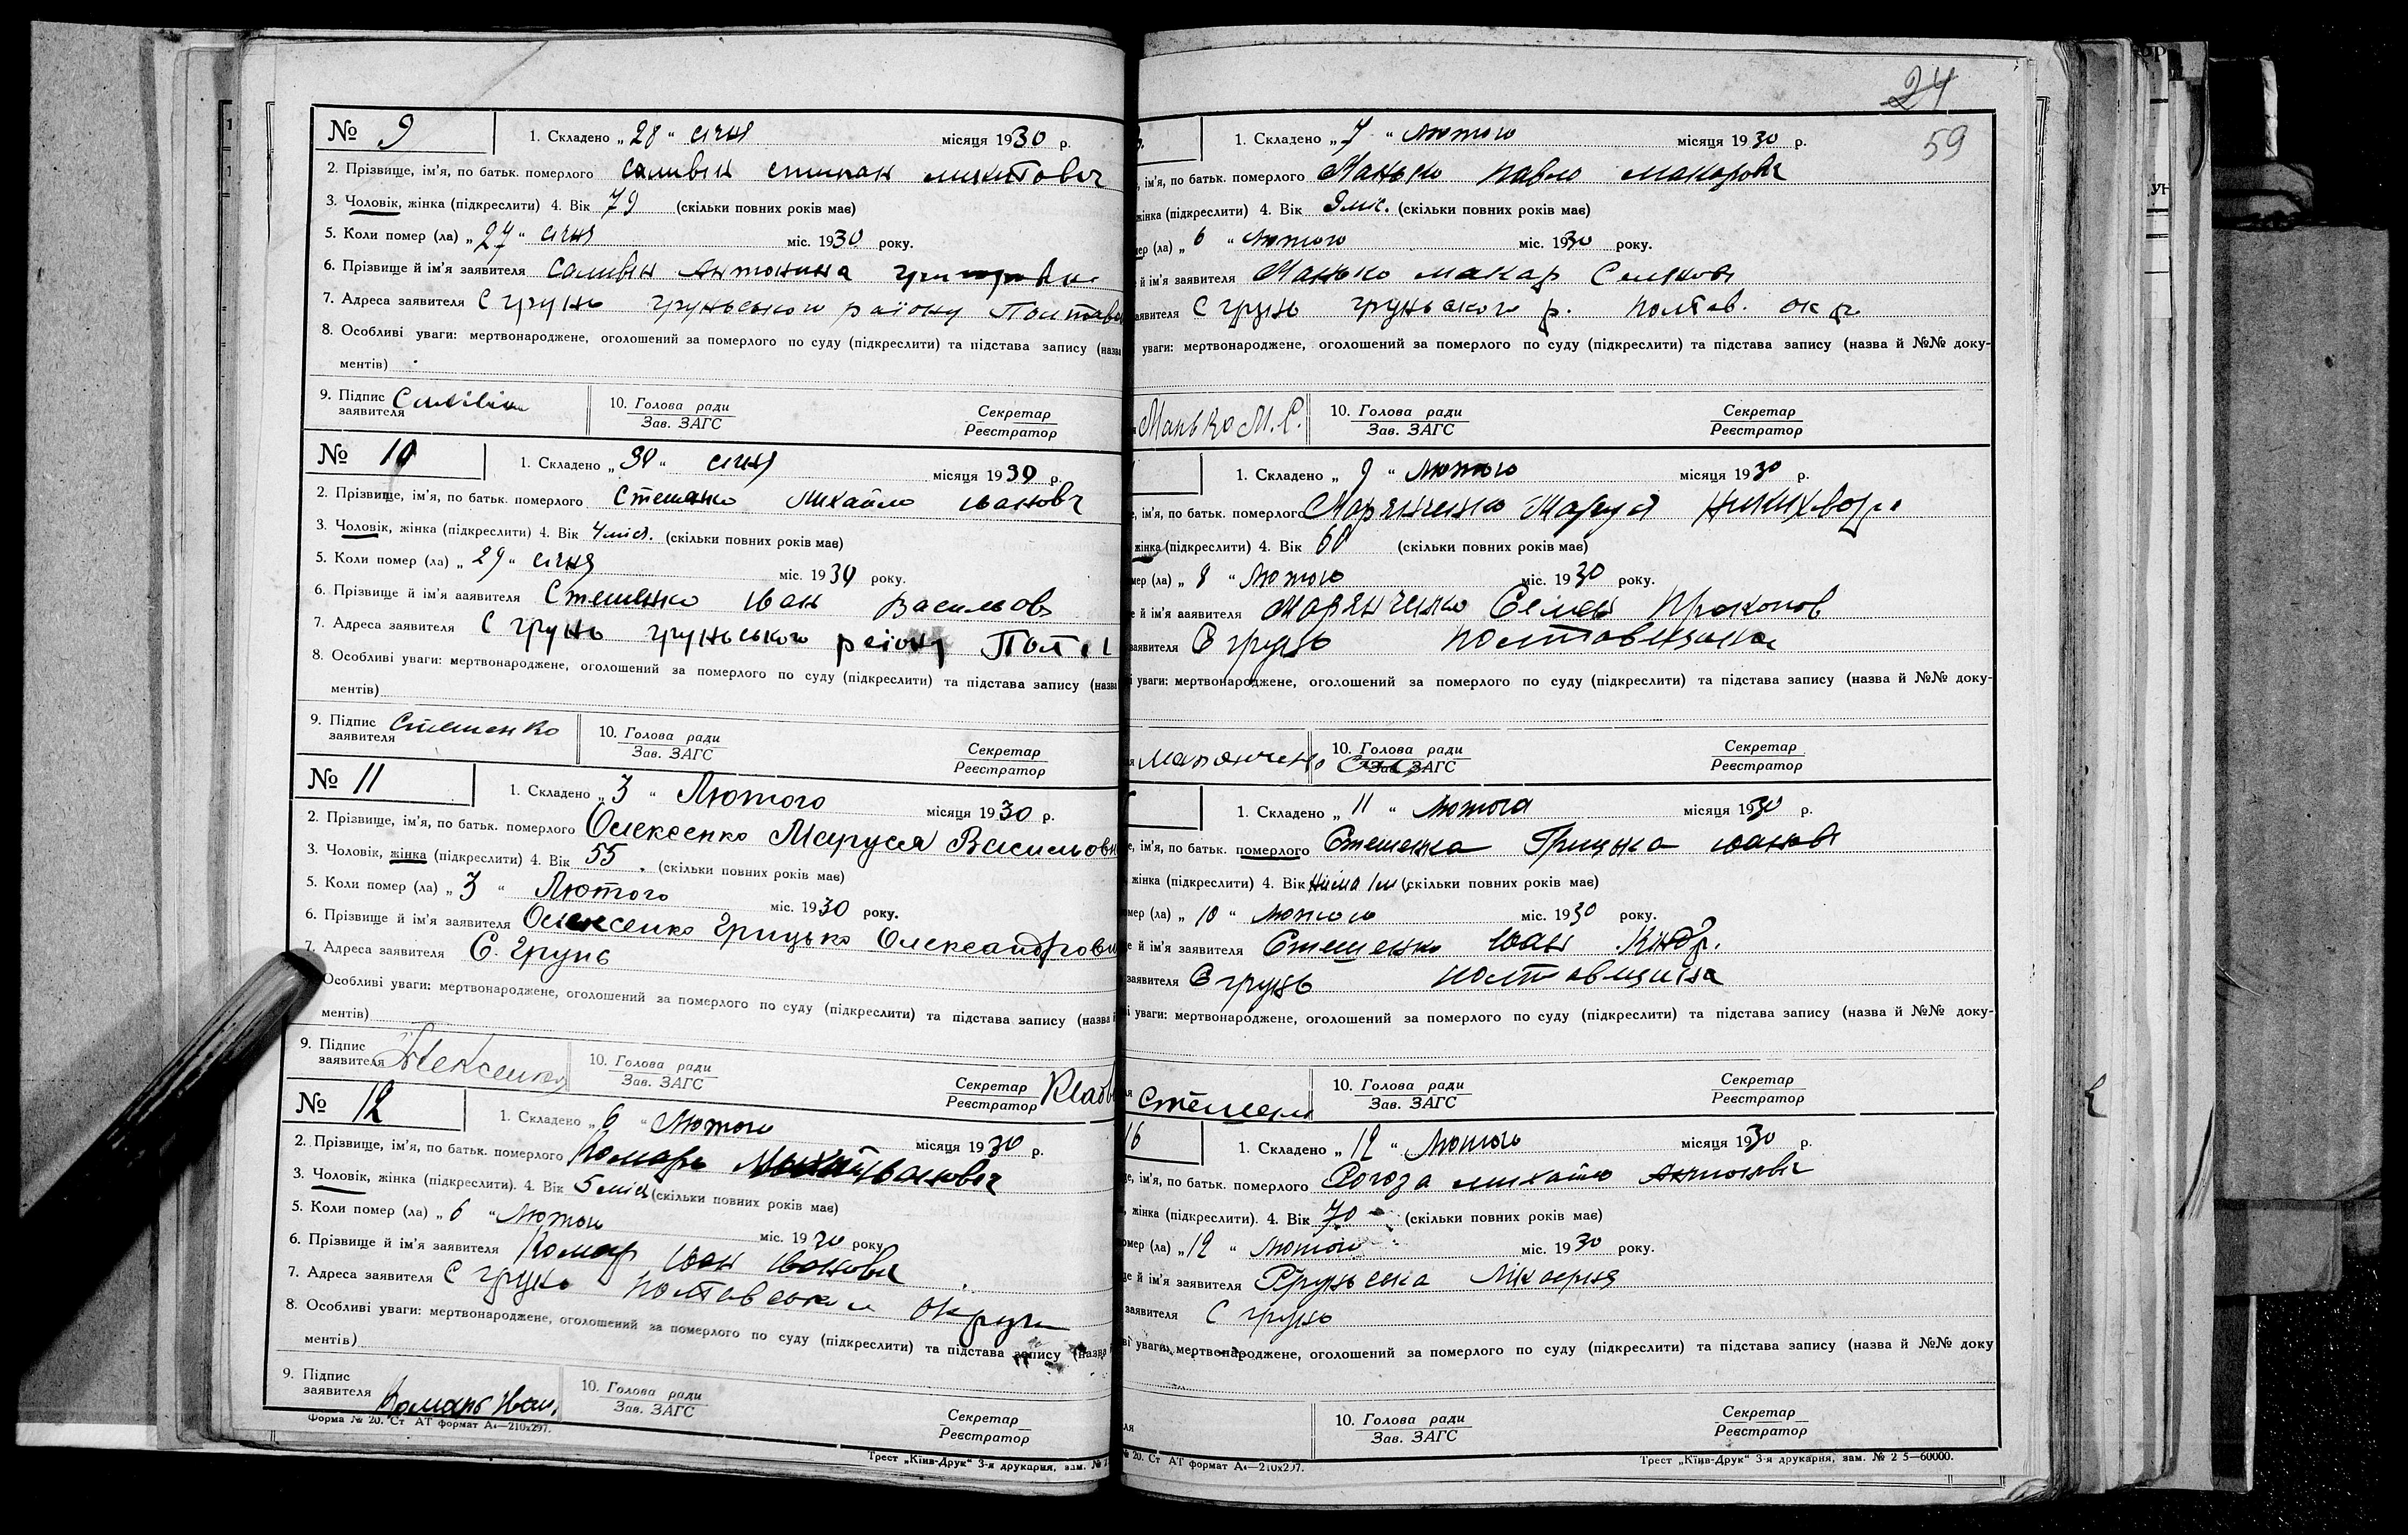 № 9
1. Складено „28“ січня місяця 1930 р.
2. Прізвище, ім'я, по батьк. померлого Саливін Степан Микитович
3. Чоловік, жінка (підкреслити) 4. Вік 79 (скільки повних років має)
5. Коли помер (ла) „27“ січня міс. 1930 року.
6. Прізвище й ім'я заявителя Саливін Антонина
7. Адреса заявителя С грунь груньського району Полтавс
8. Особливі уваги: мертвонароджене, оголошений за померлого по суду (підкреслити) та підстава запису (назва
ментів)
9. Підпис заявителя
10. Голова ради
Зав. ЗАГС
Секретар
Реєстратор
№ 10
1. Складено „30“ січня місяця 1930 р.
2. Прізвище, ім'я, по батьк. померлого Стешенко Михайло Іванович
3. Чоловік, жінка (підкреслити) 4. Вік 4 міся. (скільки повних років має)
5. Коли помер (ла) „29“ січня міс. 1930 року.
6. Прізвище й ім'я заявителя Стешенко Іван Васильов
7. Адреса заявителя С грунь груньського району Полт
8. Особливі уваги: мертвонароджене, оголошений за померлого по суду (підкреслити) та підстава запису (назва
ментів)
9. Підпис заявителя Стешенко
10. Голова ради
Зав. ЗАГС
Секретар
Реєстратор
№ 11
1. Складено „3“ Лютого місяця 1930 р.
2. Прізвище, ім'я, по батьк. померлого Олексенко Маруся Васильовн
3. Чоловік, жінка (підкреслити) 4. Вік 55. (скільки повних років має)
5. Коли помер (ла) „3“ Лютого міс. 1930 року.
6. Прізвище й ім'я заявителя Олексенко Грицько Олександрови
7. Адреса заявителя С. Грунь
Особливі уваги: мертвонароджене, оголошений за померлого по суду (підкреслити) та підстава запису (назва
ментів)
9. Підпис заявителя Олексенко
10. Голова ради
Зав. ЗАГС
Секретар
Реєстратор
№ 12
1. Складено „6“ Лютого місяця 1930 р.
2. Прізвище, ім'я, по батьк. померлого Комарь Іванович
3. Чоловік, жінка (підкреслити). 4. Вік 5 міся (скільки повних років має)
5. Коли помер (ла) „6“ Лютого міс. 1930 року
6. Прізвище й ім'я заявителя Комар Іван Іванович
7. Адреса заявителя С грунь Полтавської округи
8. Особливі уваги: мертвонароджене, оголошений за померлого по суду (підкреслити) та підстава запису (назва
ментів)
9. Підпис заявителя Комарь Иван
10. Голова ради
Зав. ЗАГС
Секретар
Реєстратор
Форма № 20. Ст АТ формат А4—210х297.
Трест „Київ-Друк“ 3-я друкарня, зам. №
24
59
1. Складено „7“ Лютого місяця 1930 р.
ім'я, по батьк. померлого Манько Павло Макарович
жінка (підкреслити) 4. Вік 9 міс. (скільки повних років має)
мер (ла) „6“ Лютого міс. 1930 року.
й ім'я заявителя Манько Макар Семенов
заявителя С грунь груньського р. Полтав. окр
уваги: мертвонароджене, оголошений за померлого по суду (підкреслити) та підстава запису (назва й №№ доку-
Манько М. С.
10. Голова ради
Зав. ЗАГС
Секретар
Реєстратор
1. Складено „9“ Лютого місяця 1930 р.
ім'я, по батьк. померлого Марянченко Маруся Никихвор.
жінка (підкреслити) 4. Вік 60 (скільки повних років має)
мер (ла) „8“ Лютого міс. 1930 року.
е й ім'я заявителя Марянченко Семен Прокопов
заявителя С грунь Полтавщина
й уваги: мертвонароджене, оголошений за померлого по суду (підкреслити) та підстава запису (назва й №№ доку-
Марянченко
10. Голова ради
Зав. ЗАГС
Секретар
Реєстратор
1. Складено „11“ Лютого місяця 1930 р.
е, ім'я, по батьк. померлого Стешенка Грицька Іванов
жінка (підкреслити) 4. Вік Нима 1 м (скільки повних років має)
омер (ла) „10“ Лютого міс. 1930 року.
е й ім'я заявителя Стешенко Іван Кіндр.
заявителя С грунь Полтавщина
і уваги: мертвонароджене, оголошений за померлого по суду (підкреслити) та підстава запису (назва й №№ доку-
10. Голова ради
Зав. ЗАГС
Секретар
Реєстратор
16
1. Складено „12“ Лютого місяця 1930 р.
е, ім'я, по батьк. померлого Рогоза Михайло Антонович
жінка (підкреслити). 4. Вік 70 (скільки повних років має)
омер (ла) „12“ Лютого міс. 1930 року.
е й ім'я заявителя Груньська Лікарня
заявителя С грунь
ві уваги: мертвонароджене, оголошений за померлого по суду (підкреслити) та підстава запису (назва й №№ доку
10. Голова ради
Зав. ЗАГС
Секретар
Реєстратор
№ 20. Ст АТ формат А4—210х297.
Трест „Київ-Друк“ 3-я друкарня, зам. № 2 5—60000.